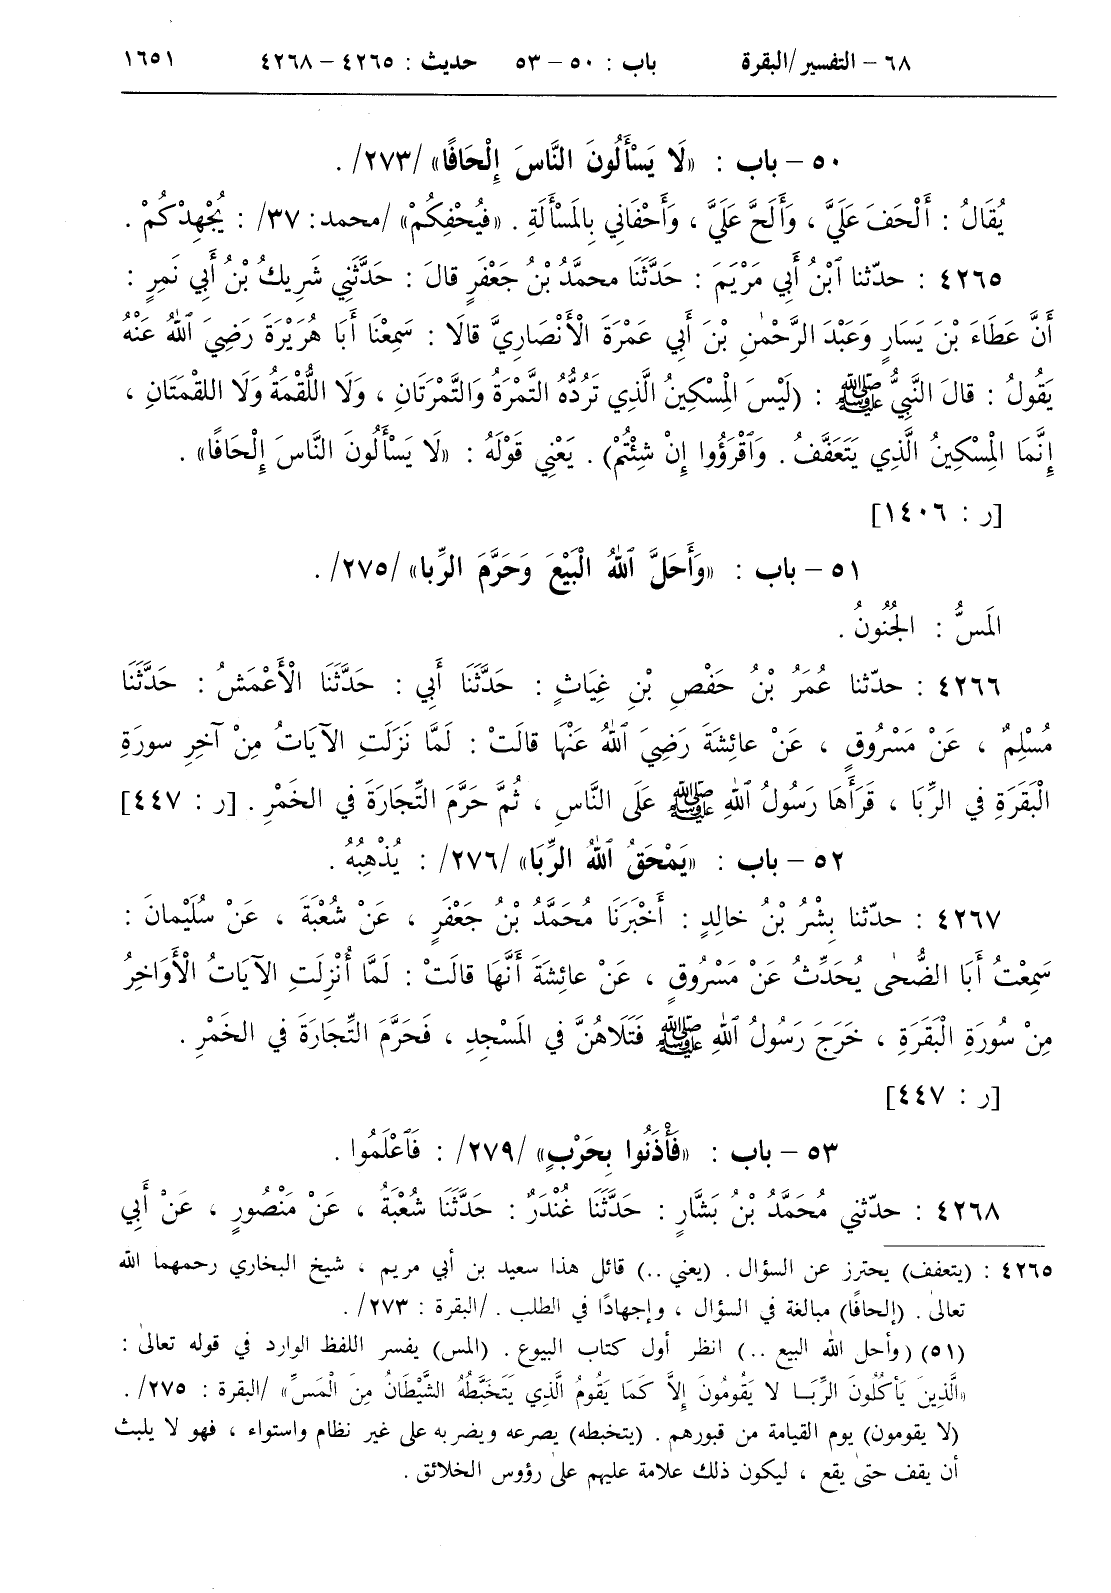 ٦٨ - التفسير/البقرة باب : ٥٠ - ٥٣ حديث : ٤٢٦٥ - ٤٢٦٨ ١٦٥١
٥٠ - باب : «لَا يَسْأَلُونَ النَّاسَ إِلْحَافًا» /٢٧٣/ .
يُقَالُ : أَلْحَفَ عَلَيَّ ، وَأَلَحَّ عَلَيَّ ، وَأَحْفَانِي بِالْمَسْأَلَةِ . «فَيُحْفِكُمْ» /محمد: ٣٧/ : يُجْهِدْكُمْ .
٤٢٦٥ : حدّثنا ٱبْنُ أَبِي مَرْيَمَ : حَدَّثَنَا محمَّدُ بْنُ جَعْفَرٍ قالَ : حَدَّثَنِي شَرِيكُ بْنُ أَبِي نَمِرٍ :
أَنَّ عَطَاءَ بْنَ يَسَارٍ وَعَبْدَ الرَّحْمٰنِ بْنَ أَبِي عَمْرَةَ الْأَنْصَارِيَّ قالَا : سَمِعْنَا أَبَا هُرَيْرَةَ رَضِيَ ٱللهُ عَنْهُ
يَقُولُ : قالَ النَّبِيُّ ﷺ : (لَيْسَ الْمِسْكِينُ الَّذِي تَرُدُّهُ التَّمْرَةُ وَالتَّمْرَتَانِ ، وَلَا اللُّقْمَةُ وَلَا اللقْمَتَانِ ،
إِنَّمَا الْمِسْكِينُ الَّذِي يَتَعَفَّفُ . وَٱقْرَؤُوا إِنْ شِئْتُمْ) . يَعْنِي قَوْلَهُ : «لَا يَسْأَلُونَ النَّاسَ إِلْحَافًا» .
[ر : ١٤٠٦]
٥١ - باب : «وَأَحَلَّ ٱللهُ الْبَيْعَ وَحَرَّمَ الرِّبا» /٢٧٥/ .
المَسُّ : الجُنُونُ .
٤٢٦٦ : حدّثنا عُمَرُ بْنُ حَفْصِ بْنِ غِيَاثٍ : حَدَّثَنَا أَبِي : حَدَّثَنَا الْأَعْمَشُ : حَدَّثَنَا
مُسْلِمٌ ، عَنْ مَسْرُوقٍ ، عَنْ عائِشَةَ رَضِيَ ٱللهُ عَنْهَا قالَتْ : لَمَّا نَزَلَتِ الآيَاتُ مِنْ آخِرِ سورَةِ
الْبَقَرَةِ في الرِّبَا ، قَرَأَهَا رَسُولُ ٱللهِ ﷺ عَلَى النَّاسِ ، ثُمَّ حَرَّمَ التِّجَارَةَ في الخَمْرِ . [ر : ٤٤٧]
٥٢ - باب : «يَمْحَقُ ٱللهُ الرِّبَا» /٢٧٦/ : يُذْهِبُهُ .
٤٢٦٧ : حدّثنا بِشْرُ بْنُ خالِدٍ : أَخْبَرَنَا مُحَمَّدُ بْنُ جَعْفَرٍ ، عَنْ شُعْبَةَ ، عَنْ سُلَيْمانَ :
سَمِعْتُ أَبَا الضُّحٰى يُحَدِّثُ عَنْ مَسْرُوقٍ ، عَنْ عائِشَةَ أَنَّهَا قالَتْ : لَمَّا أُنْزِلَتِ الآيَاتُ الْأَوَاخِرُ
مِنْ سُورَةِ الْبَقَرَةِ ، خَرَجَ رَسُولُ ٱللهِ ﷺ فَتَلَاهُنَّ في المَسْجِدِ ، فَحَرَّمَ التِّجَارَةَ في الخَمْرِ .
[ر : ٤٤٧]
٥٣ - باب : «فَأْذَنُوا بِحَرْبٍ» /٢٧٩/ : فَٱعْلَمُوا .
٤٢٦٨ : حدّثني مُحَمَّدُ بْنُ بَشَّارٍ : حَدَّثَنَا غُنْدَرٌ : حَدَّثَنَا شُعْبَةُ ، عَنْ مَنْصُورٍ ، عَنْ أَبِي
٤٢٦٥ : (يتعفف) يحترز عن السؤال . (يعني ..) قائل هذا سعيد بن أبي مريم ، شيخ البخاري رحمهما الله
تعالى . (إلحافًا) مبالغة في السؤال ، وإجهادًا في الطلب . /البقرة : ٢٧٣/ .
(٥١) (وأحل الله البيع ..) انظر أول كتاب البيوع . (المس) يفسر اللفظ الوارد في قوله تعالى :
«الَّذِينَ يَأْكُلُونَ الرِّبَا لا يَقُومُونَ إِلاَّ كَمَا يَقُومُ الَّذِي يَتَخَبَّطُهُ الشَّيْطَانُ مِنَ الْمَسِّ» /البقرة : ٢٧٥/ .
(لا يقومون) يوم القيامة من قبورهم . (يتخبطه) يصرعه ويضربه على غير نظام واستواء ، فهو لا يلبث
أن يقف حتى يقع ، ليكون ذلك علامة عليهم على رؤوس الخلائق .